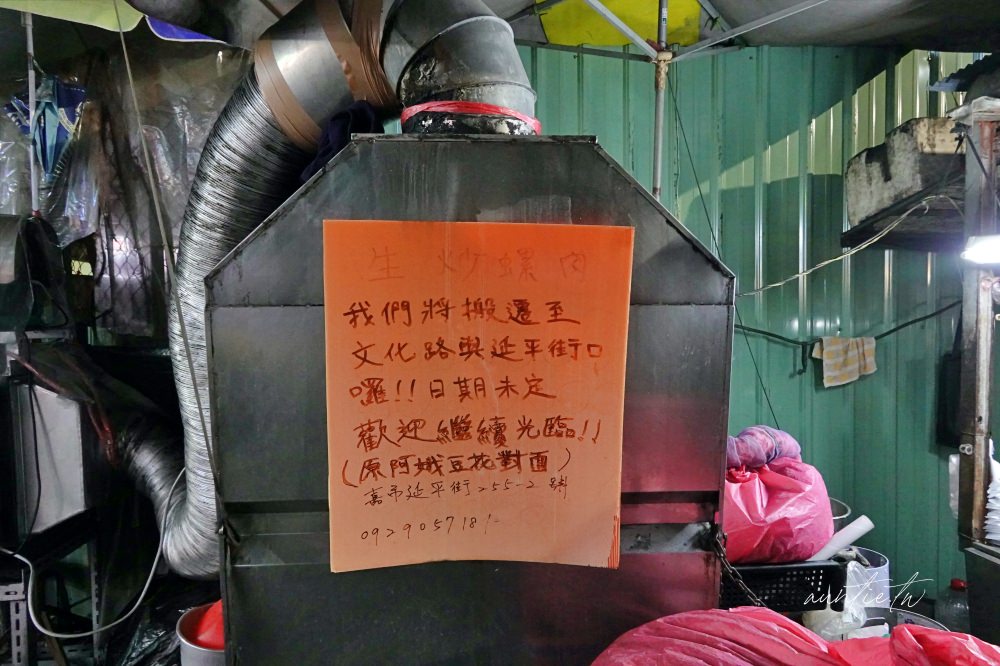 生炒螺肉
我們將搬遷至
文化路與延平街口
囉!!日期未定
歡迎繼續光臨!!
(原阿娥豆花對面)
嘉市延平街255-2號
auntie.tw